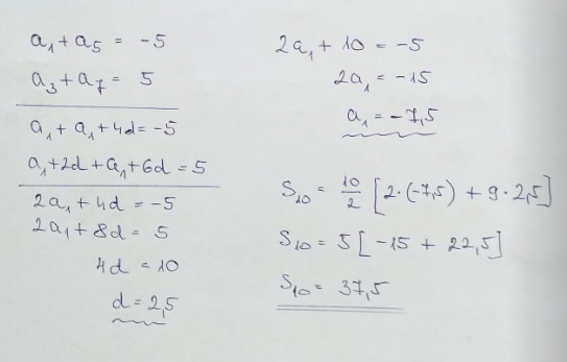 a₁ + a₅ = -5
a₃ + a₇ = 5
a₁ + a₁ + 4d = -5
a₁ + 2d + a₁ + 6d = 5
2a₁ + 4d = -5
2a₁ + 8d = 5
4d = 10
d = 2,5
2a₁ + 10 = -5
2a₁ = -15
a₁ = -7,5
S₁₀ = 10/2 [2·(-7,5) + 9·2,5]
S₁₀ = 5[-15 + 22,5]
S₁₀ = 37,5